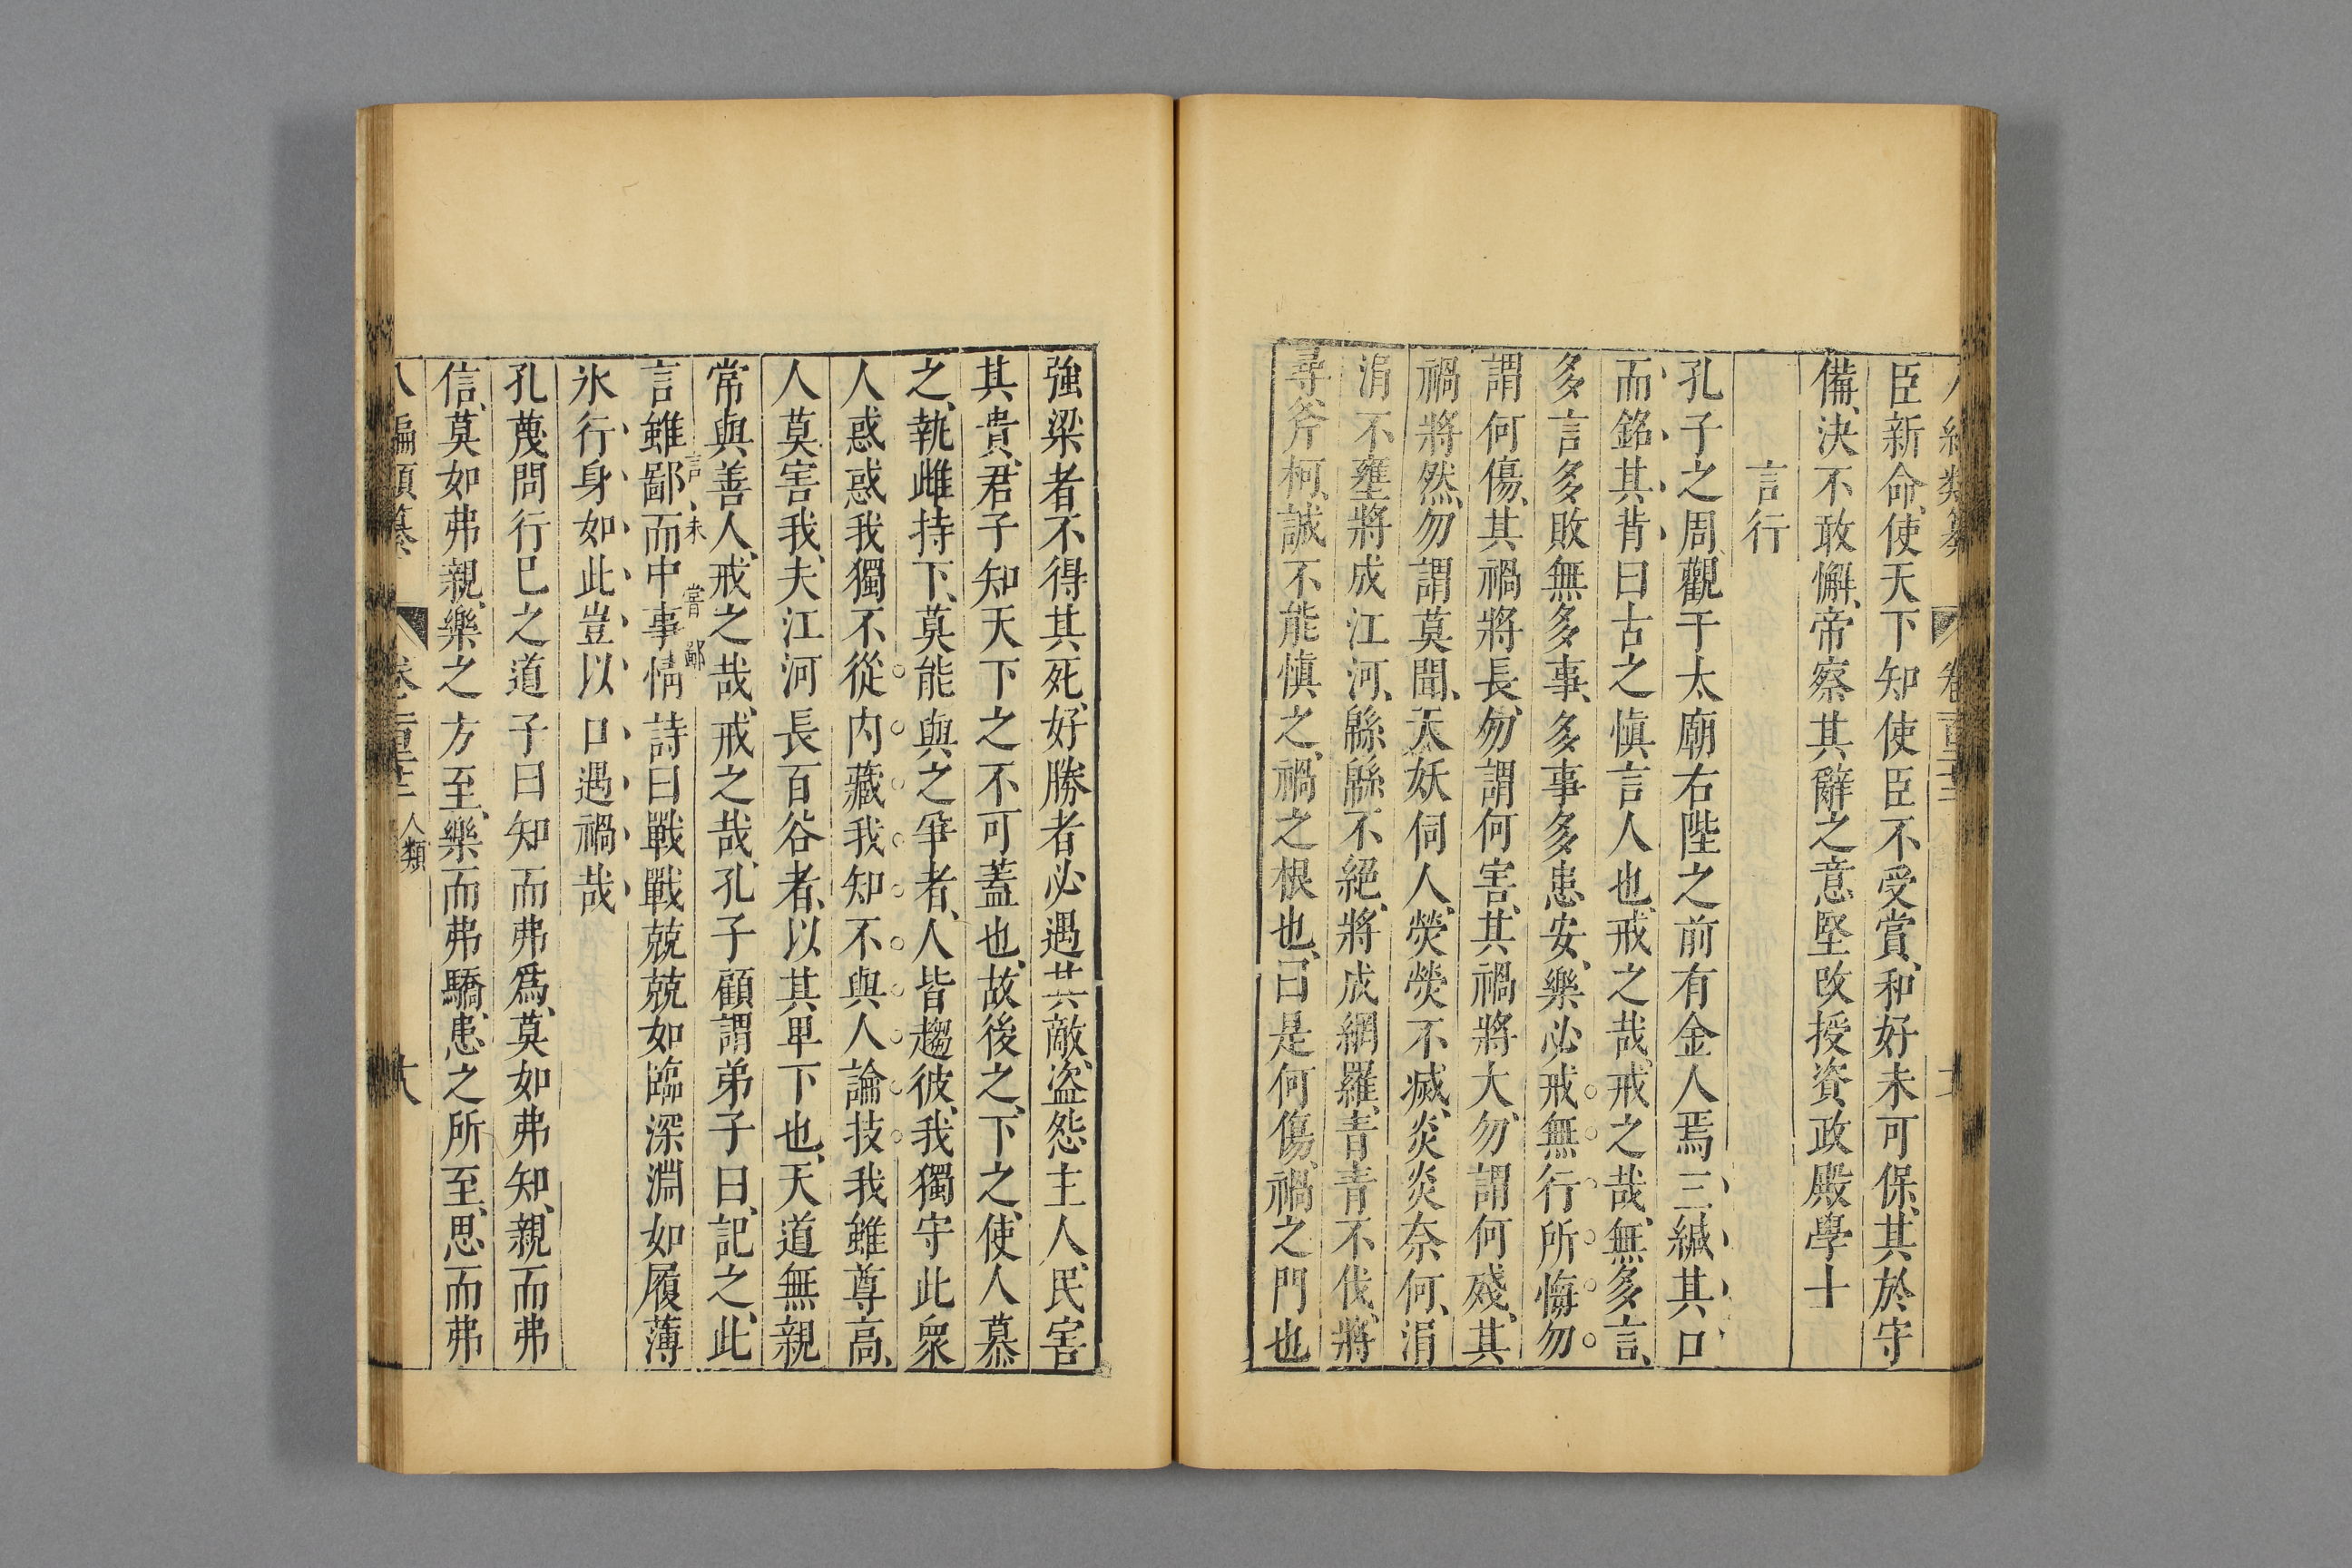 臣新命、使天下知使臣不受賞、和好未可保、其於守
備、決不敢懈、帝察其辭之意堅改授資政殿學士
言行
孔子之周、觀于太廟右陛之前有金人焉三緘其口
而銘其背曰古之慎言人也、戒之哉、戒之哉、無多言、
多言多敗無多事、多事多患安樂必戒無行所悔勿
謂何傷、其禍將長、勿謂何害、其禍將大、勿謂何殘、其
禍將然、勿謂莫聞、天妖伺人、熒熒不滅、炎炎奈何、涓
涓不壅將成江河、緜緜不絕、將成網羅、青青不伐、將
尋斧柯、誠不能慎之、禍之根也、曰是何傷、禍之門也
強梁者不得其死、好勝者必遇其敵、盗怨主人、民害
其貴、君子知天下之不可蓋也、故後之、下之、使人慕
之、執雌持下、莫能與之爭者、人皆趨彼、我獨守此衆
人惑惑我獨不從內藏我知不與人論技我雖尊高、
人莫害我、夫江河長百谷者、以其卑下也、天道無親
常與善人、戒之哉、戒之哉、孔子顧謂弟子曰、記之、此
言、未嘗鄙
言雖鄙而中事情詩曰戰戰兢兢如臨深淵如履薄
氷行身如此豈以口遇禍哉
孔蔑問行已之道子曰知而弗爲、莫如弗知、親而弗
信、莫如弗親、樂之方至、樂而弗驕、患之所至、思而弗
八編類纂 卷之一百三十三 人類 十八